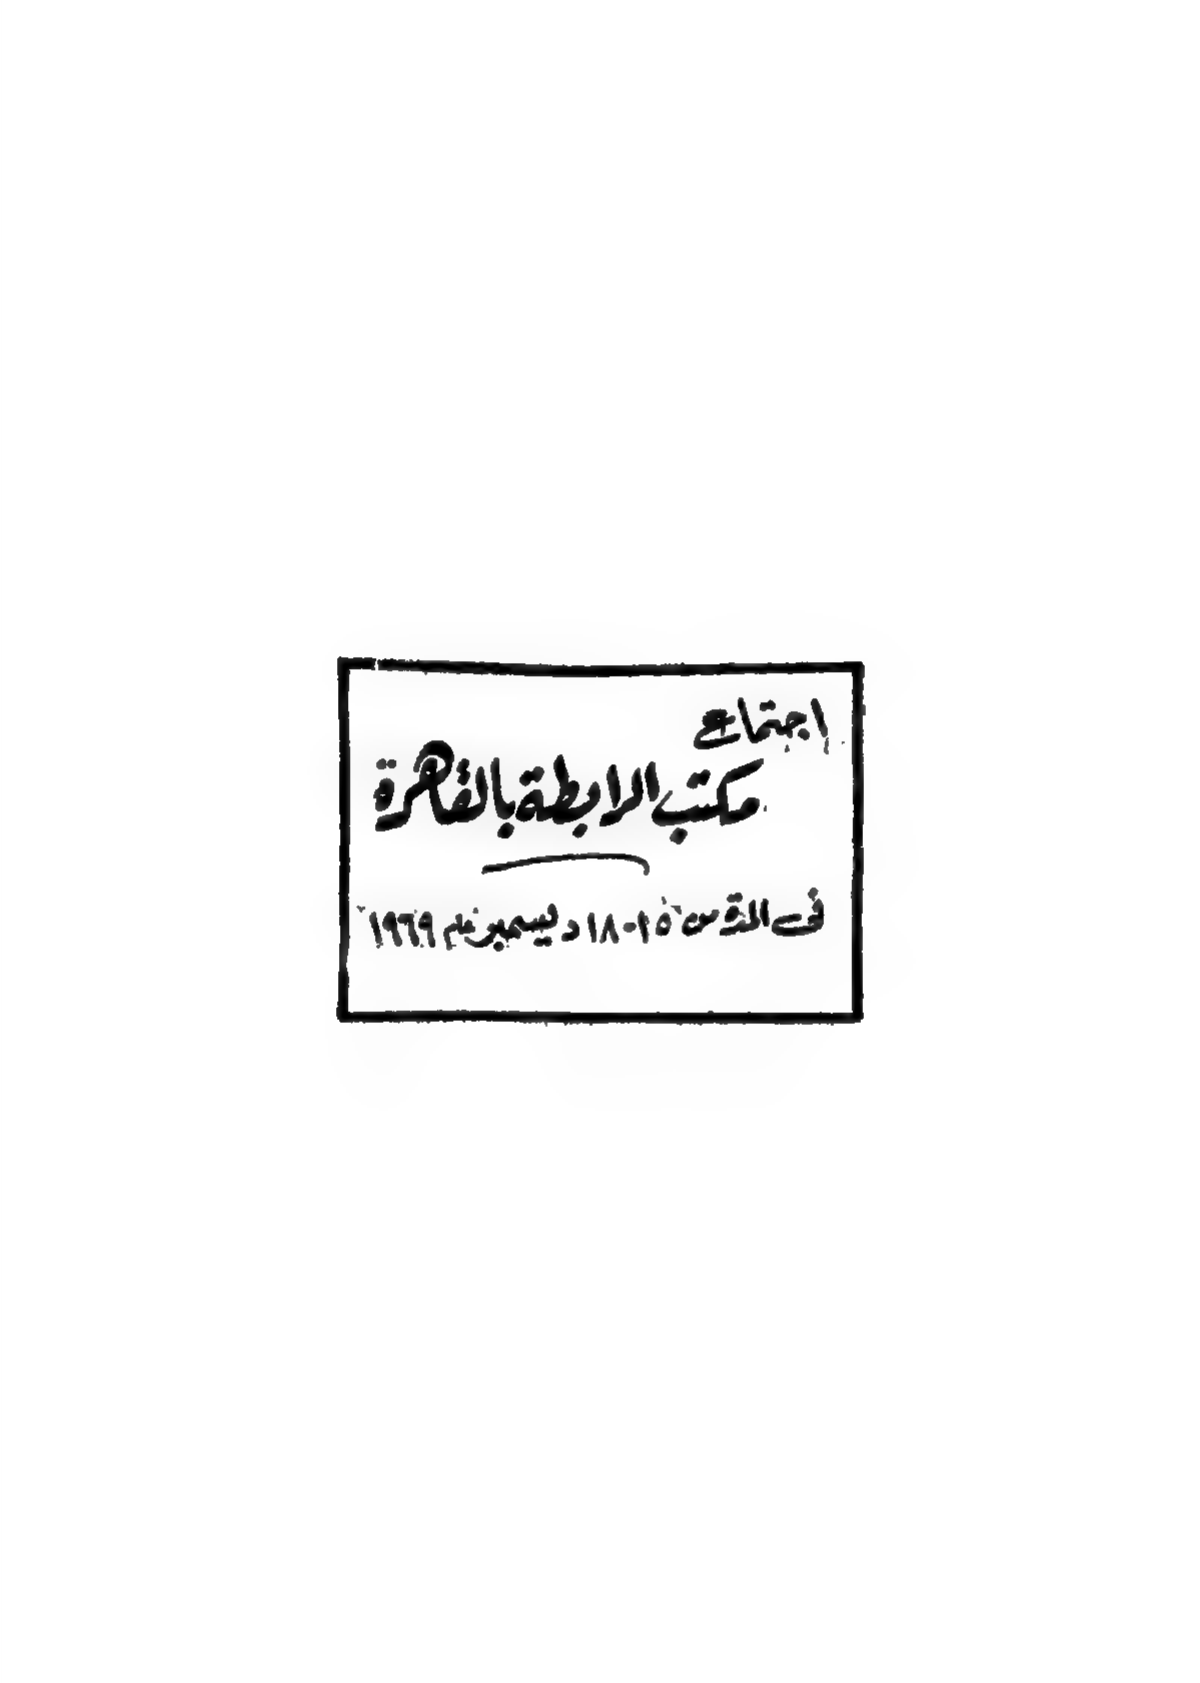 اجتماع
مكتب الرابطة بالقاهرة
فى المدة من ١٥-١٨ ديسمبر عام ١٩٦٩